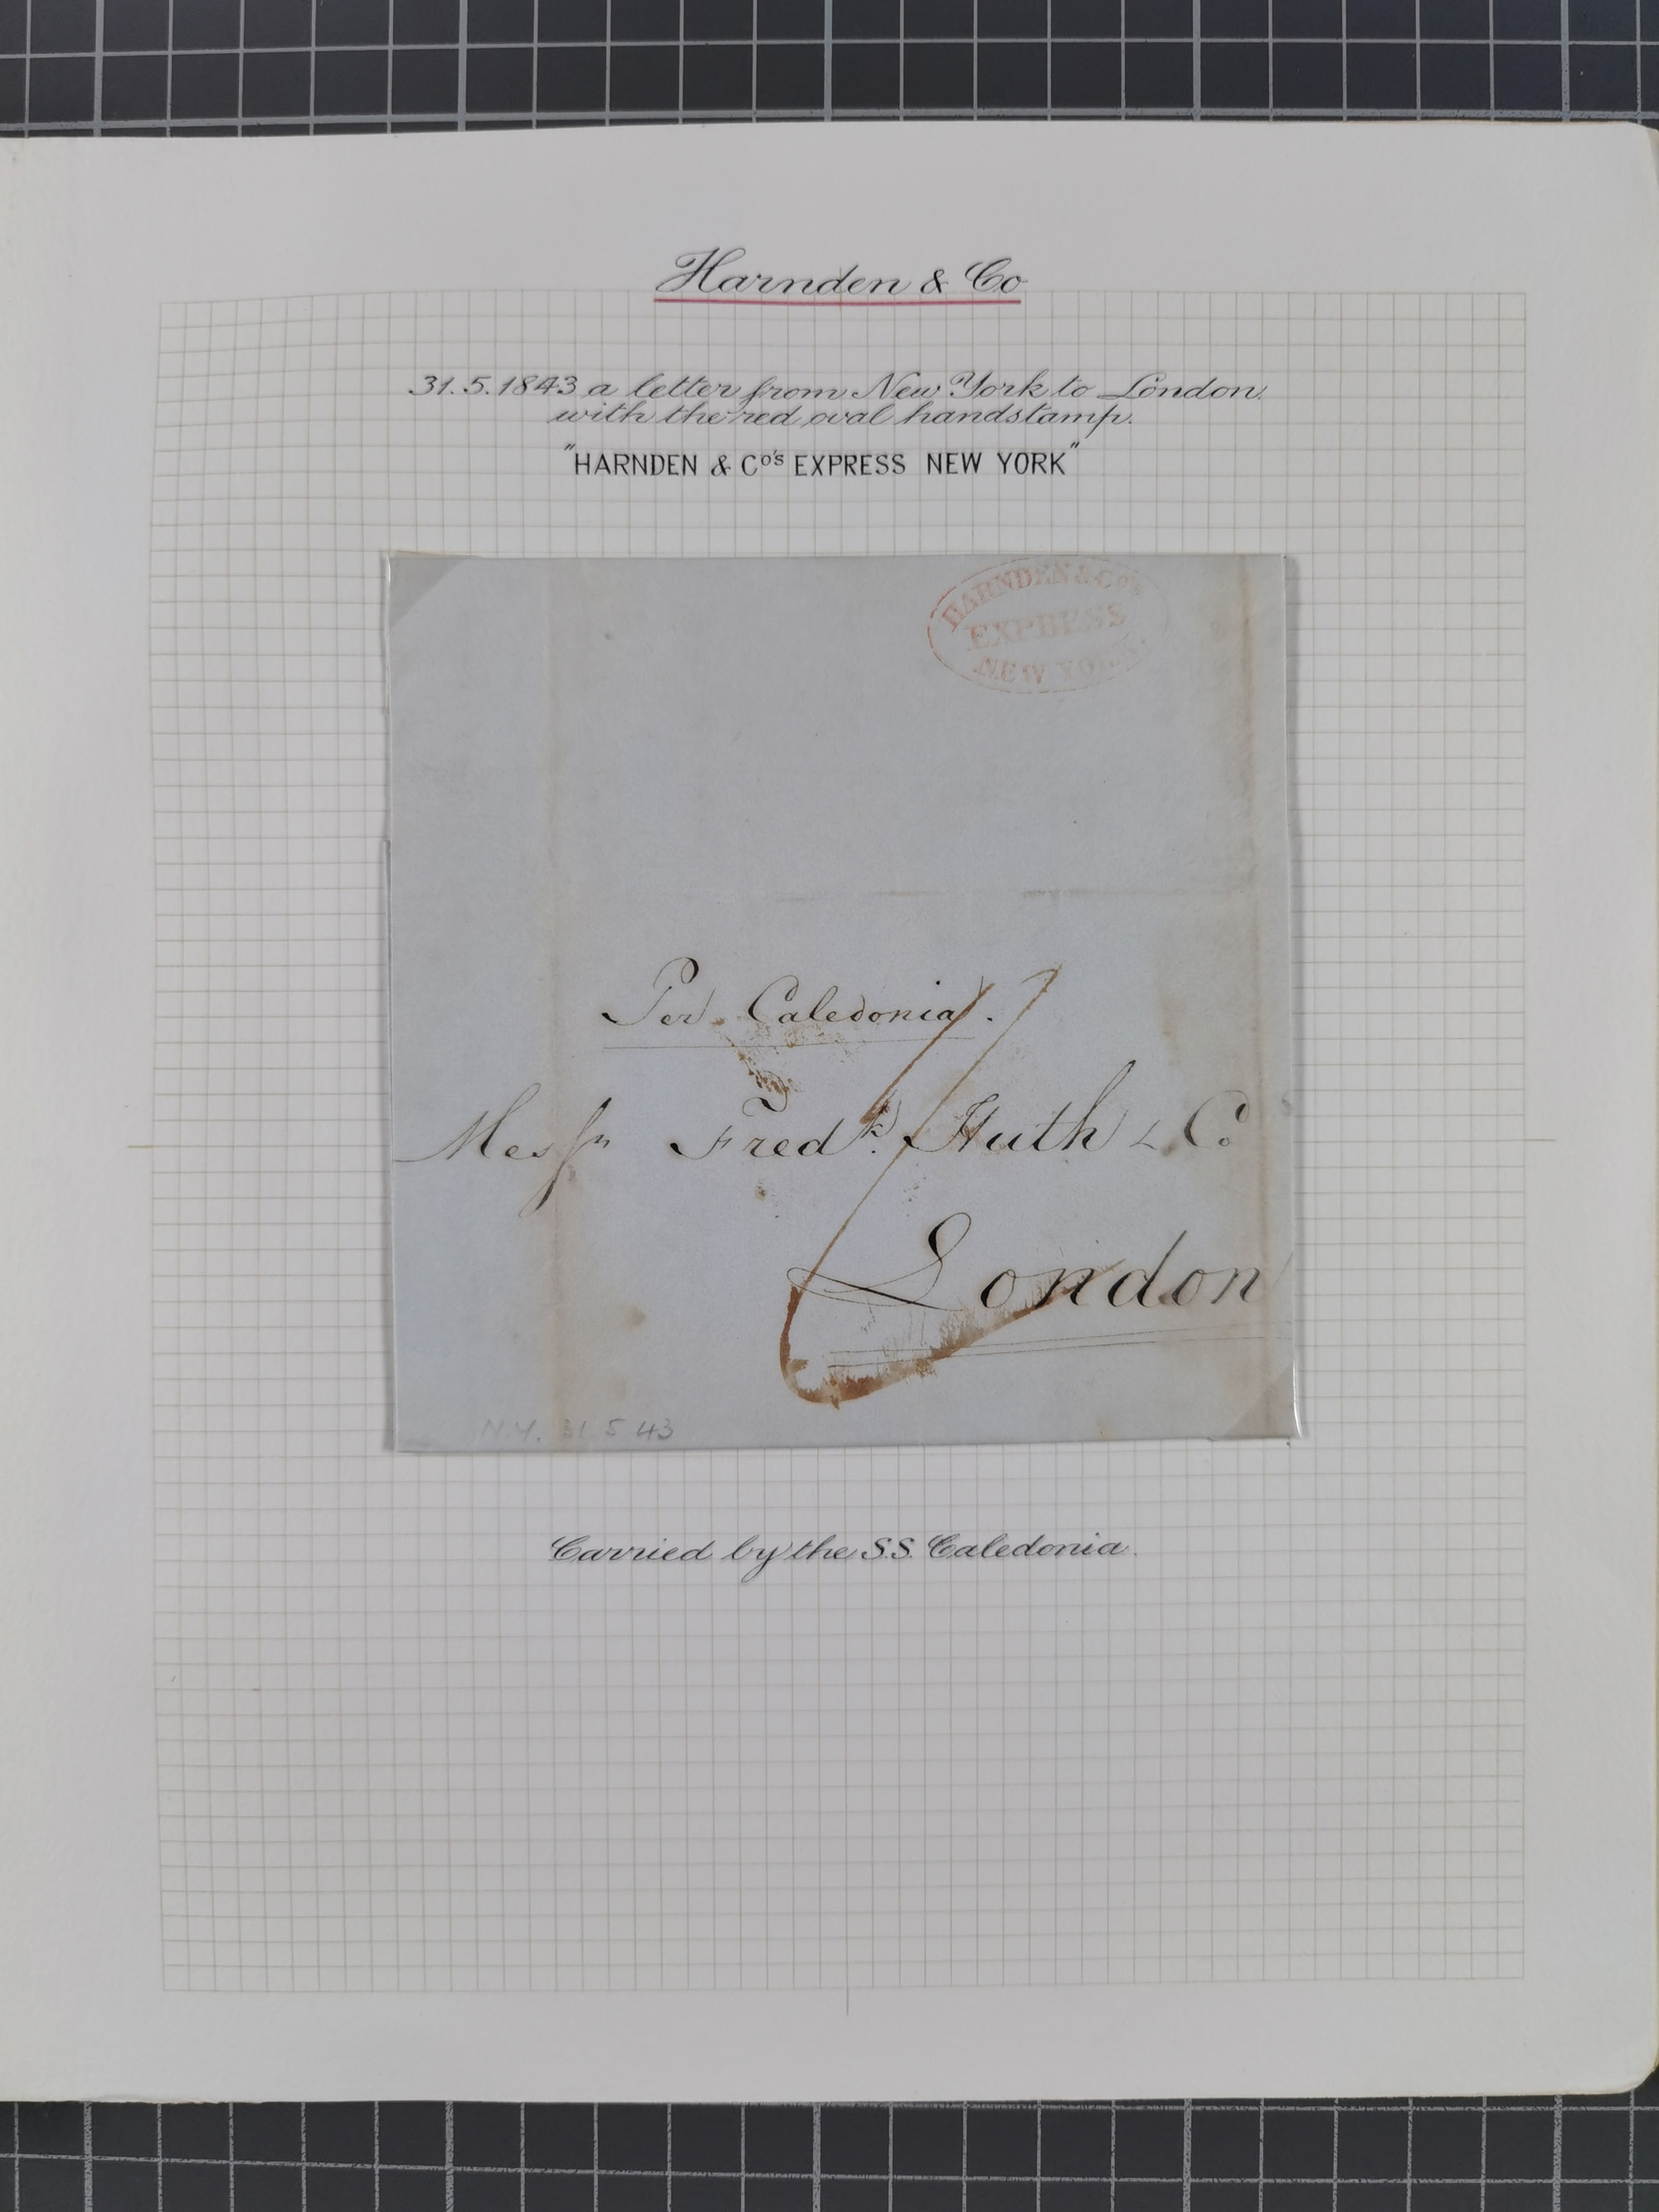 Harnden & Co
31.5.1843 a letter from New York to London
with the red oval handstamp.
"HARNDEN & Co's EXPRESS NEW YORK"
HARNDEN & Co's
EXPRESS
NEW YORK.
Per Caledonia.
Messrs Fredk. Huth & Co
London
N.Y. 31 5 43
Carried by the S.S. Caledonia.